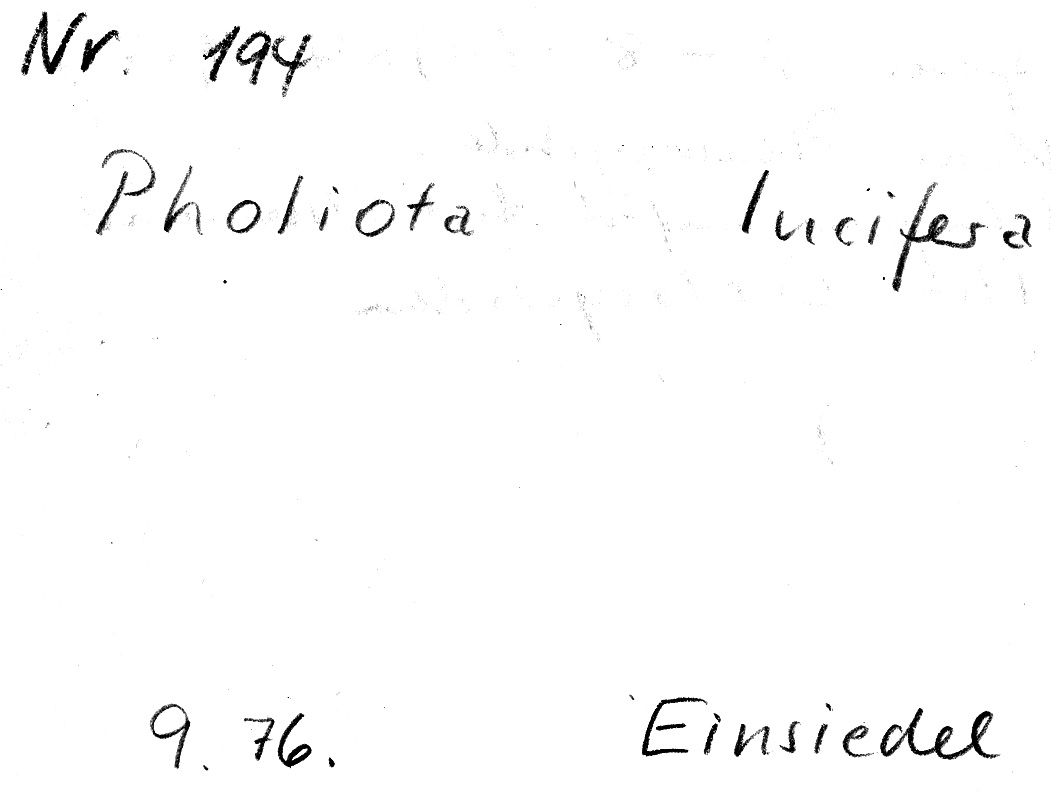 Nr. 194
Pholiota lucifera
9. 76. Einsiedel